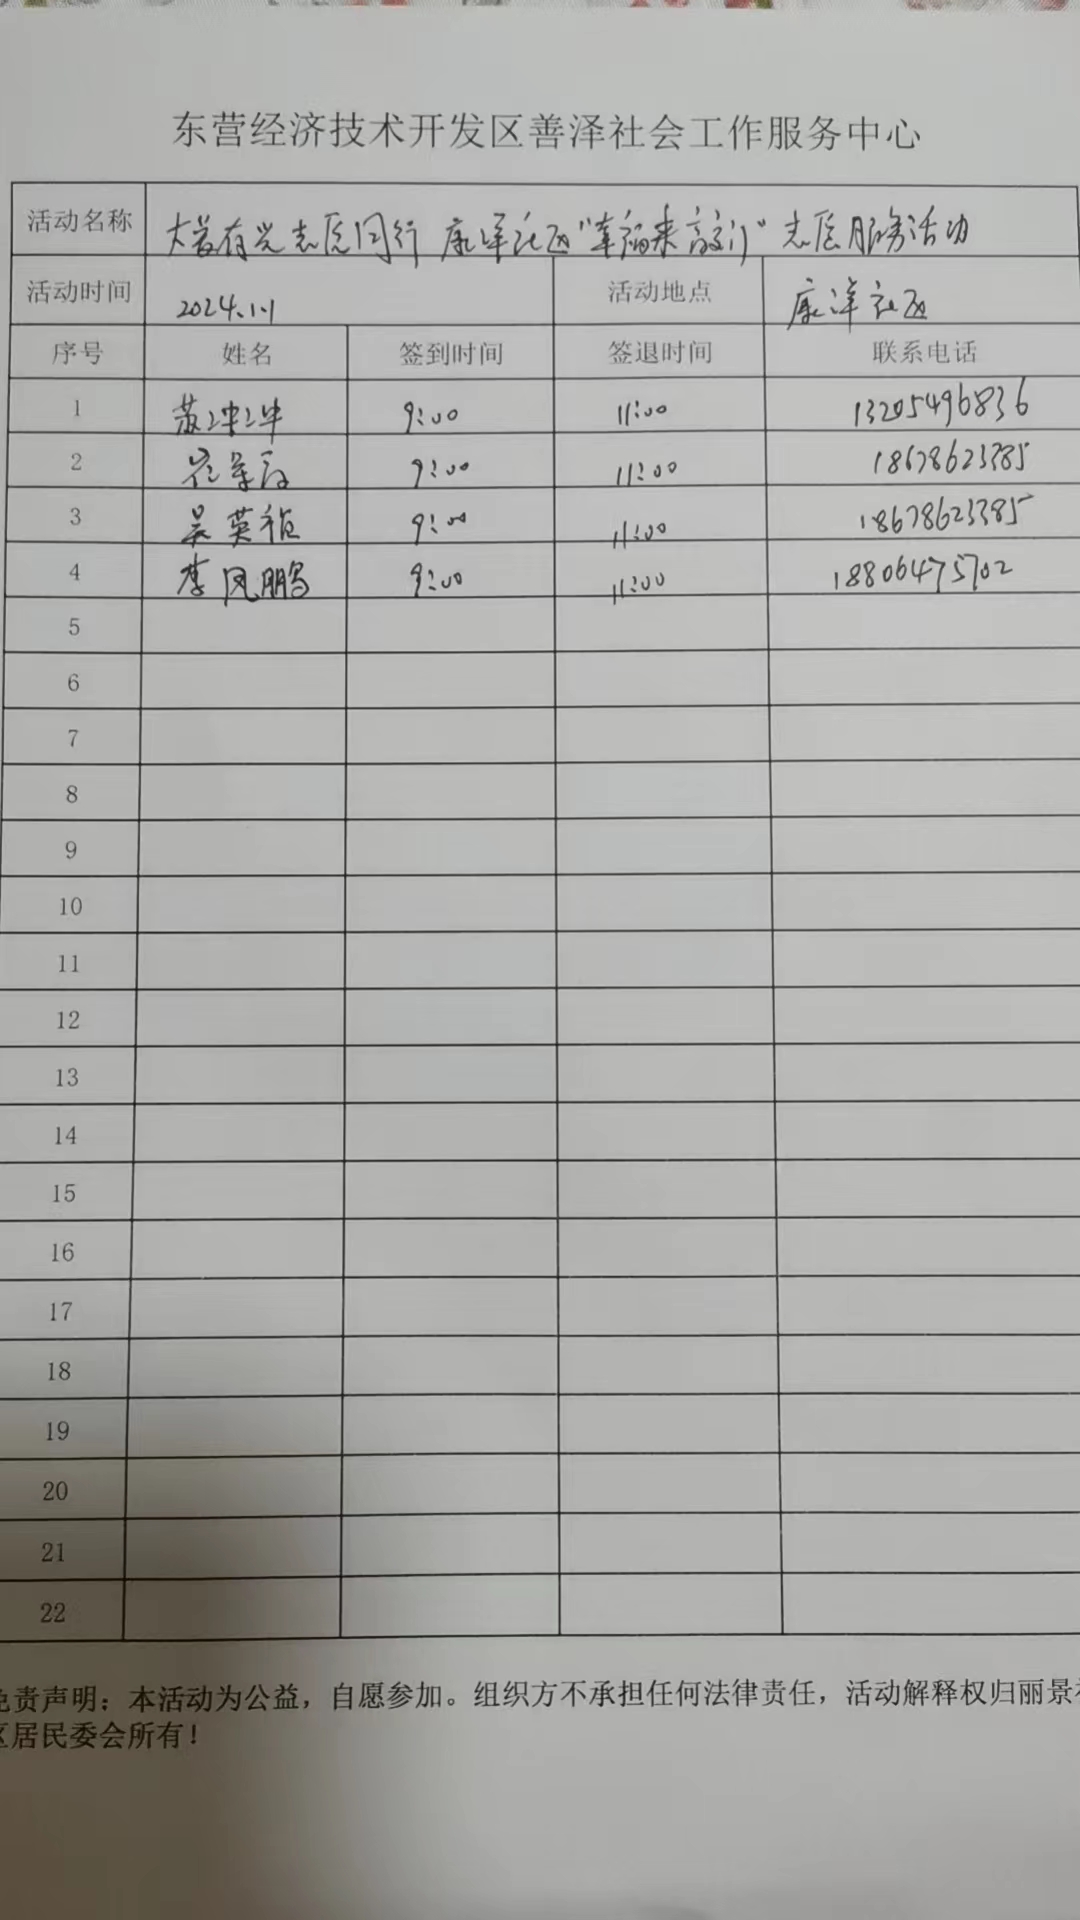 东营经济技术开发区善泽社会工作服务中心
活动名称 大爱有光志愿同行 康洋社区"幸福来敲门"志愿服务活动
活动时间 2024.1.1 活动地点 康洋社区
序号 姓名 签到时间 签退时间 联系电话
1 苏冲冲 9:00 11:00 13205496836
2 9:00 11:00 18678623385
3 吴英祖 9:00 11:00 18678623385
4 李凤鹏 9:00 11:00 18806475702
5
6
7
8
9
10
11
12
13
14
15
16
17
18
19
20
21
22
免责声明：本活动为公益，自愿参加。组织方不承担任何法律责任，活动解释权归丽景社
区居民委会所有！